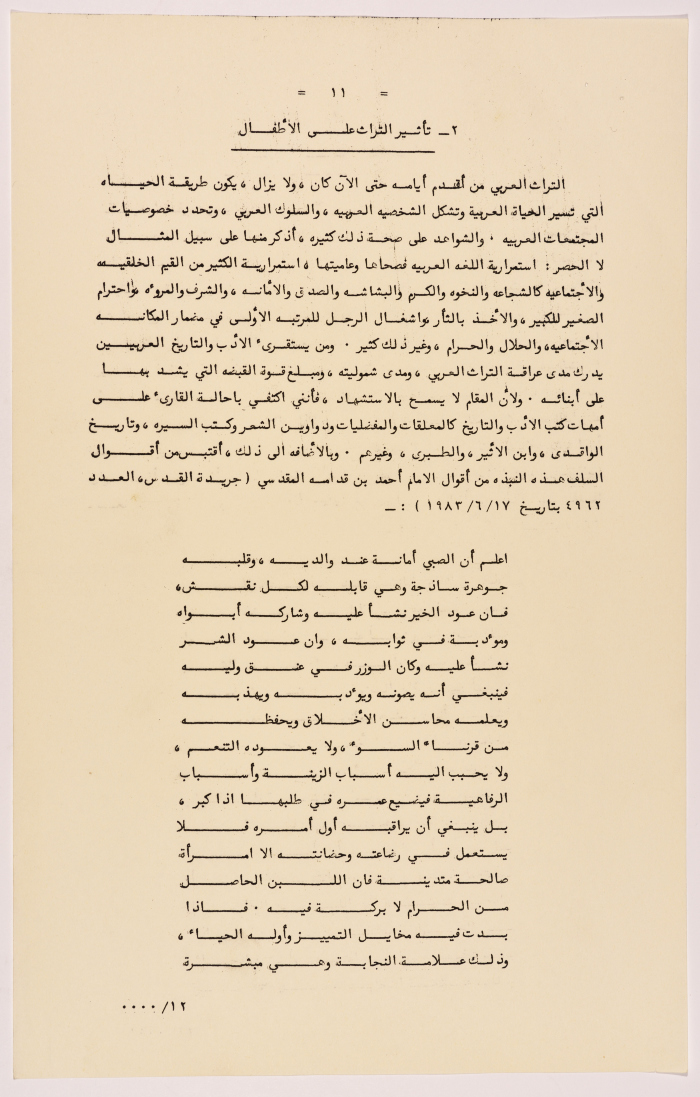 = ١١ =
٢ــ تأثير التراث على الأطفال
التراث العربي من أقدم أيامه حتى الآن كان ، ولا يزال ، يكون طريقة الحياه
التي تسير الحياة العربية وتشكل الشخصيه العربيه ، والسلوك العربي ، وتحدد خصوصيات
المجتمعات العربيه ٠ والشواهد على صحة ذلك كثيره ، أذكر منها على سبيل المثال
لا الحصر : استمرارية اللغه العربيه فصحاها وعاميتها ، استمرارية الكثير من القيم الخلقيه
والاجتماعيه كالشجاعه والنخوه والكرم والبشاشه والصدق والأمانه ، والشرف والمروءه واحترام
الصغير للكبير ، والأخذ بالثأر واشغال الرجل للمرتبه الأولى في مضمار المكانه
الأجتماعيه، والحلال والحرام ، وغير ذلك كثير ٠ ومن يستقرىء الأدب والتاريخ العربيين
يدرك مدى عراقة التراث العربي ، ومدى شموليته ، ومبلغ قوة القبضه التي يشد بها
على أبنائه ٠ ولأن المقام لا يسمح بالاستشهاد ، فأنني اكتفي باحالة القارىء على
أمهات كتب الأدب والتاريخ كالمعلقات والمفضليات ودواوين الشعر وكتب السيره ، وتاريخ
الواقدى ، وابن الأثير ، والطبرى ، وغيرهم ٠ وبالأضافه الى ذلك ، أقتبس من أقوال
السلف هذه النبذه من أقوال الامام أحمد بن قدامه المقدسي ( جريدة القدس، العدد
٤٩٦٢ بتاريخ ١٩٨٣/٦/١٧ ) : ــ
اعلم أن الصبي أمانة عند والديه ، وقلبه
جوهرة ساذجة وهي قابله لكل نقش،
فان عود الخير نشأ عليه وشاركه أبواه
ومؤدبة في ثوابه ، وان عود الشر
نشأ عليه وكان الوزر في عنق وليه
فينبغي أنه يصونه ويؤدبه ويهذبه
ويعلمه محاسن الأخلاق ويحفظه
من قرناء السوء ، ولا يعوده التنعم ،
ولا يحبب اليه أسباب الزينة وأسباب
الرفاهية فيضيع عمره في طلبها اذا كبر ،
بل ينبغي أن يراقبه أول أمره فلا
يستعمل في رضاعته وحضانته الا امرأة
صالحة متدينة فان اللبن الحاصل
من الحرام لا بركة فيه ٠ فاذا
بدت فيه مخايل التمييز وأوله الحياء ،
وذلك علامة النجابة وهي مبشرة
١٢/ ٠٠٠٠